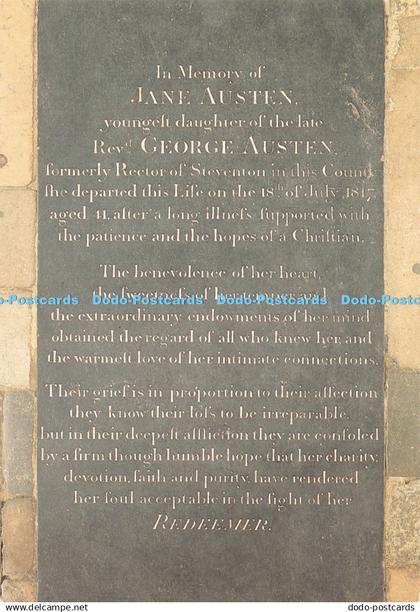 In Memory of
JANE AUSTEN,
youngeſt daughter of the late
Revd GEORGE AUSTEN,
formerly Rector of Steventon in this County
ſhe departed this Life on the 18th of July 1817,
aged 41, after a long illneſs ſupported with
the patience and the hopes of a Chriſtian.
The benevolence of her heart,
the ſweetneſs of her temper, and
Dodo-Postcards Dodo-Postcards Dodo-Postcards Dodo-Postcards
the extraordinary endowments of her mind
obtained the regard of all who knew her and
the warmeſt love of her intimate connections.
Their grief is in proportion to their affection
they know their loſs to be irreparable,
but in their deepeſt affliction they are conſoled
by a firm though humble hope that her charity,
devotion, faith and purity, have rendered
her ſoul acceptable in the ſight of her
REDEEMER.
www.delcampe.net
dodo-postcards